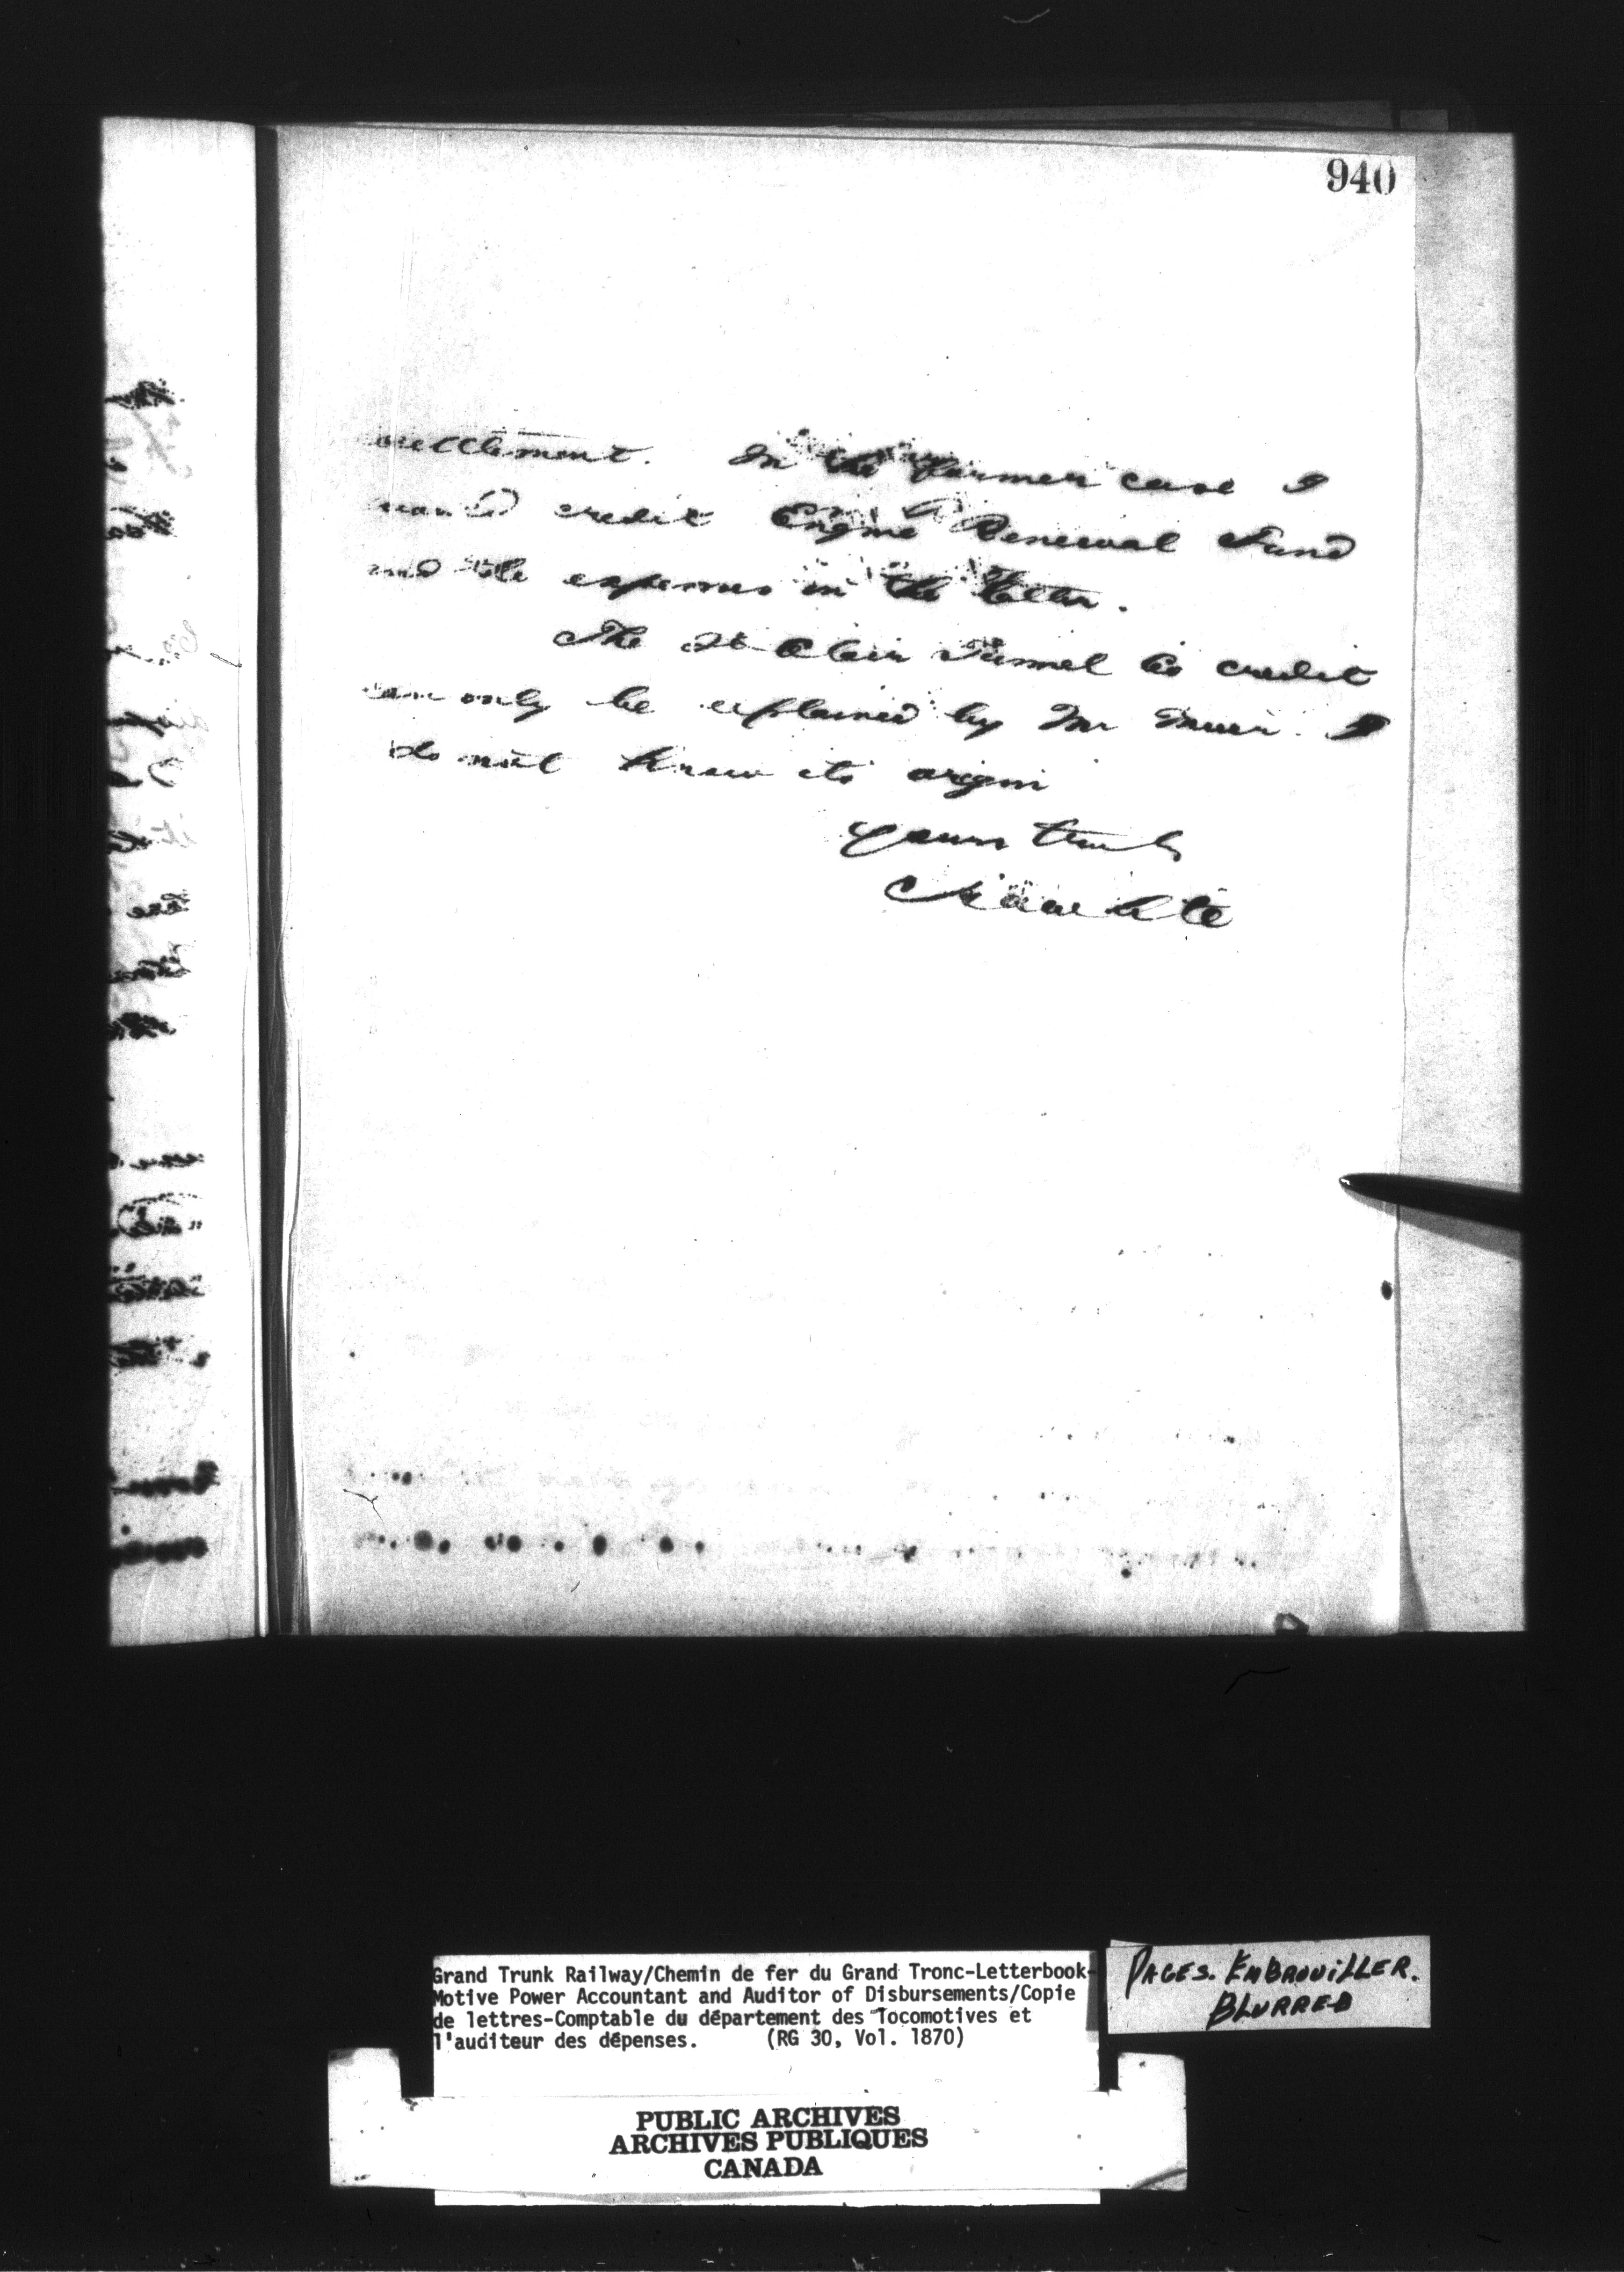 940
settlement. In the former case I
would credit Engine Renewal Fund
and the expenses in the latter.
The St Clair Tunnel Co credit
can only be explained by Mr Muir. I
do not know its origin
Yours truly
Grand Trunk Railway/Chemin de fer du Grand Tronc-Letterbook-
Motive Power Accountant and Auditor of Disbursements/Copie
de lettres-Comptable du département des locomotives et
l'auditeur des dépenses. (RG 30, Vol. 1870)
PAGES. EMBROUILLER.
BLURRED
PUBLIC ARCHIVES
ARCHIVES PUBLIQUES
CANADA